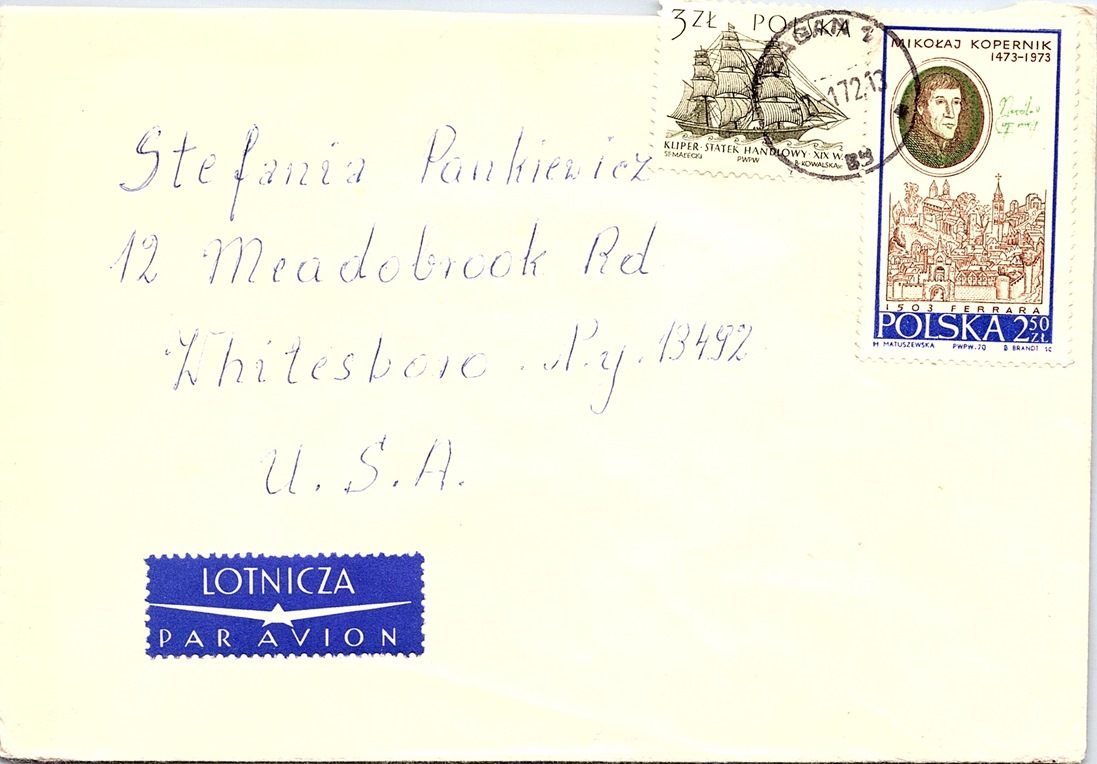 3 ZŁ POLSKA
KLIPER·STATEK HANDLOWY·XIX W.
ST·MAŁECKI PWPW B·KOWALSKA
ŻAGAŃ 1
172.13
MIKOŁAJ KOPERNIK
1473-1973
1503 FERRARA
POLSKA 2⁵⁰ ZŁ
H MATUSZEWSKA PWPW-70 B BRANDT SC
Stefania Pankiewicz
12 Meadobrook Rd
Whitesboro. N.y. 13492
U.S.A.
LOTNICZA
PAR AVION